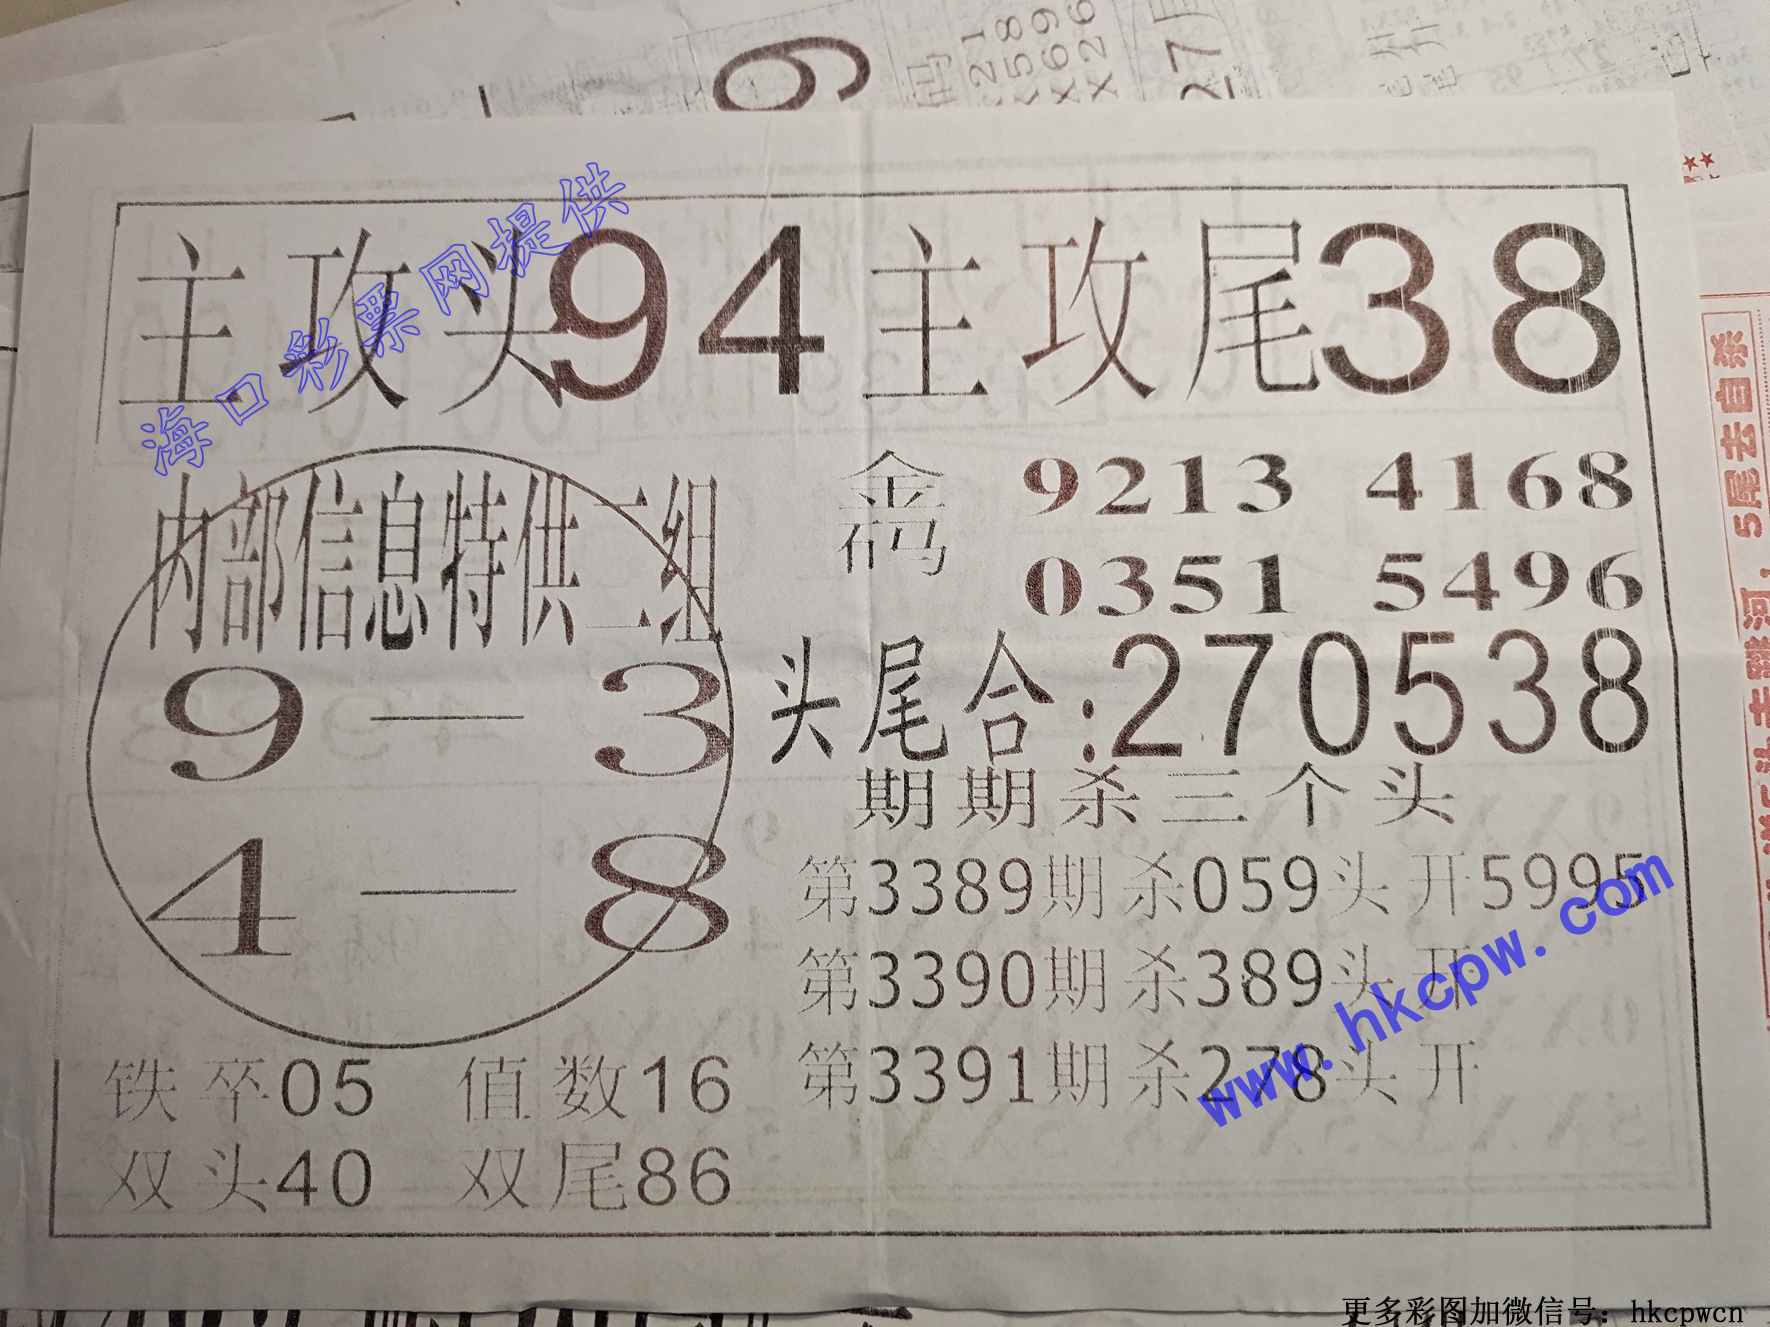 主攻头94主攻尾38
海口彩票网提供
内部信息特供二组
9—3
4—8
金码 9213 4168
0351 5496
头尾合:270538
期期杀三个头
第3389期杀059头开5995
第3390期杀389头开
第3391期杀278头开
铁卒05 值数16
双头40 双尾86
www.hkcpw.com
5尾去自杀
更多彩图加微信号：hkcpwcn